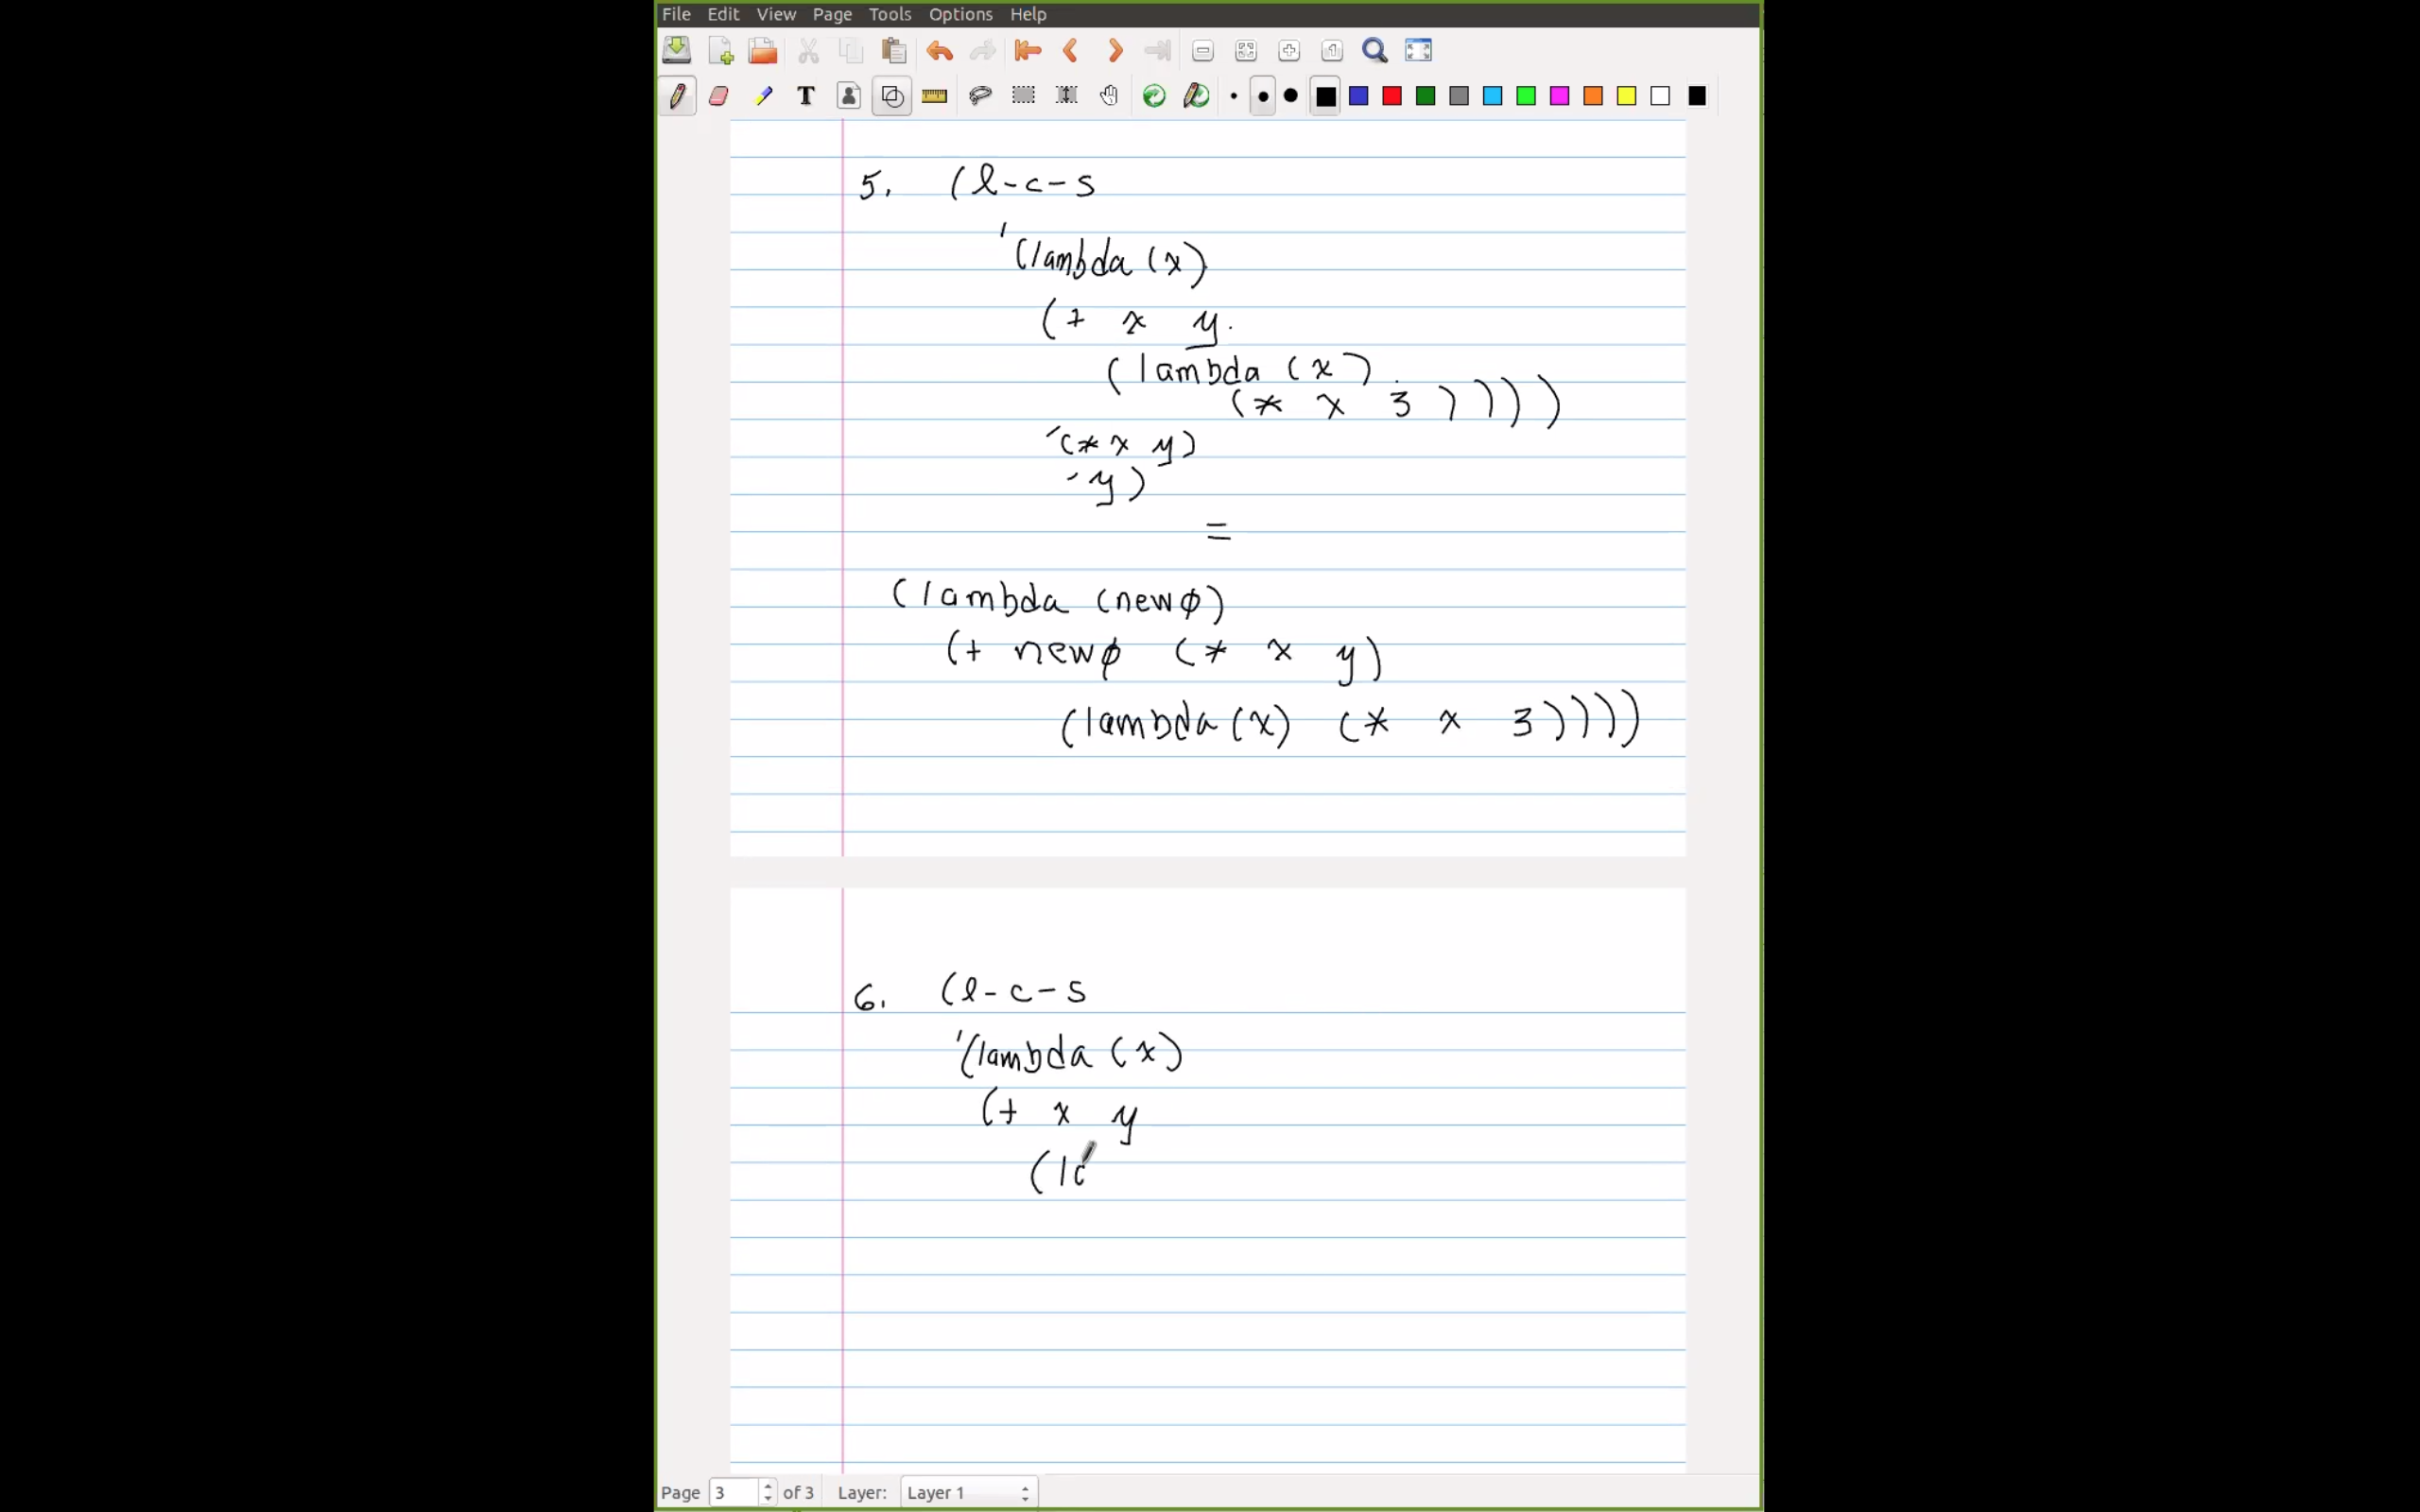 File Edit View Page Tools Options Help
5. (l-c-s
'(lambda (x)
(+ x y
(lambda (x)
(* x 3))))
'(* x y)
'y)
=
(lambda (newφ)
(+ newφ (* x y)
(lambda (x) (* x 3))))
6. (l-c-s
'(lambda (x)
(+ x y
(la
Page 3 of 3 Layer: Layer 1